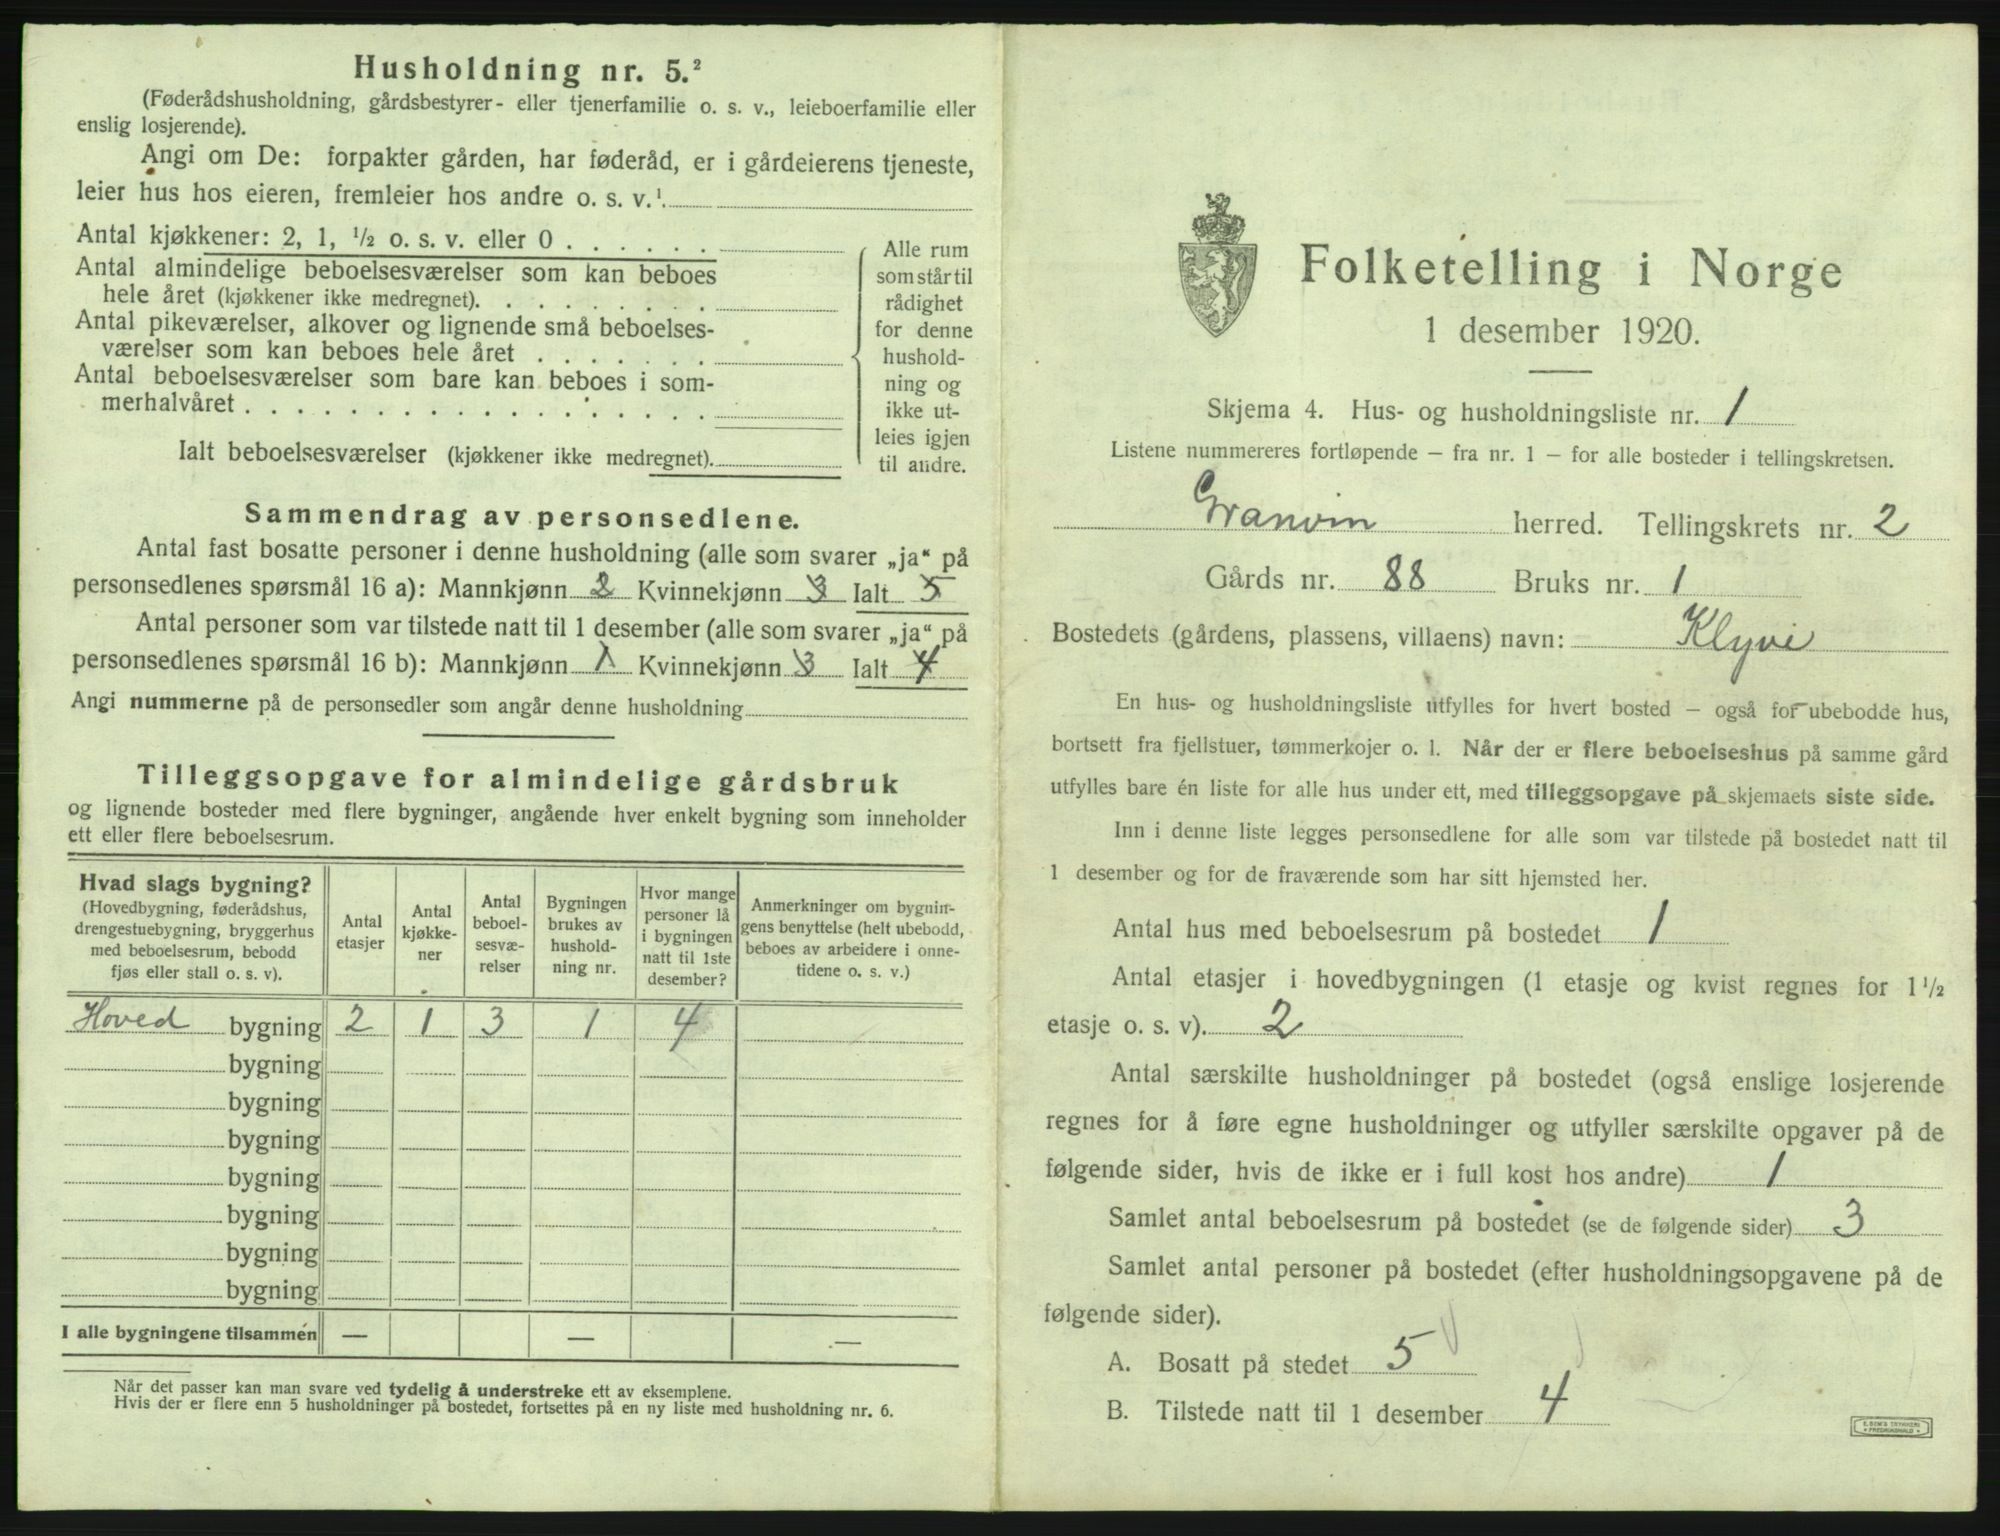 Husholdning nr. 5.²
(Føderådshusholdning, gårdsbestyrer- eller tjenerfamilie o. s. v., leieboerfamilie eller
enslig losjerende).
Angi om De: forpakter gården, har føderåd, er i gårdeierens tjeneste,
leier hus hos eieren, fremleier hos andre o. s. v.¹
Antal kjøkkener: 2, 1, ½ o. s. v. eller 0 . . . . . .
Antal almindelige beboelsesværelser som kan beboes
hele året (kjøkkener ikke medregnet). . . . . . . . .
Antal pikeværelser, alkover og lignende små beboelses-
værelser som kan beboes hele året . . . . . . .
Antal beboelsesværelser som bare kan beboes i som-
merhalvåret . . . . . . . . . . . . . . . . . .
Ialt beboelsesværelser (kjøkkener ikke medregnet).
Alle rum
som står til
rådighet
for denne
hushold-
ning og
ikke ut-
leies igjen
til andre.
Sammendrag av personsedlene.
Antal fast bosatte personer i denne husholdning (alle som svarer „ja“ på
personsedlenes spørsmål 16 a): Mannkjønn 2 Kvinnekjønn 3 Ialt 5
Antal personer som var tilstede natt til 1 desember (alle som svarer „ja“ på
personsedlenes spørsmål 16 b): Mannkjønn 1 Kvinnekjønn 3 Ialt 4
Angi nummerne på de personsedler som angår denne husholdning
Tilleggsopgave for almindelige gårdsbruk
og lignende bosteder med flere bygninger, angående hver enkelt bygning som inneholder
ett eller flere beboelsesrum.
Hvad slags bygning?
(Hovedbygning, føderådshus,
drengestuebygning, bryggerhus
med beboelsesrum, bebodd
fjøs eller stall o. s. v).
Antal
etasjer
Antal
kjøkke-
ner
Antal
beboel-
sesvæ-
relser
Bygningen
brukes av
hushold-
ning nr.
Hvor mange
personer lå
i bygningen
natt til 1ste
desember?
Anmerkninger om bygnin-
gens benyttelse (helt ubebodd,
beboes av arbeidere i onne-
tidene o. s. v.)
Hoved bygning 2 1 3 1 4
bygning
bygning
bygning
bygning
bygning
bygning
bygning
I alle bygningene tilsammen — — —
Når det passer kan man svare ved tydelig å understreke ett av eksemplene.
Hvis der er flere enn 5 husholdninger på bostedet, fortsettes på en ny liste med husholdning nr. 6.
Folketelling i Norge
1 desember 1920.
Skjema 4. Hus- og husholdningsliste nr. 1
Listene nummereres fortløpende — fra nr. 1 — for alle bosteder i tellingskretsen.
Granvin herred. Tellingskrets nr. 2
Gårds nr. 88 Bruks nr. 1
Bostedets (gårdens, plassens, villaens) navn: Klyvi
En hus- og husholdningsliste utfylles for hvert bosted — også for ubebodde hus,
bortsett fra fjellstuer, tømmerkojer o. l. Når der er flere beboelseshus på samme gård
utfylles bare én liste for alle hus under ett, med tilleggsopgave på skjemaets siste side.
Inn i denne liste legges personsedlene for alle som var tilstede på bostedet natt til
1 desember og for de fraværende som har sitt hjemsted her.
Antal hus med beboelsesrum på bostedet 1
Antal etasjer i hovedbygningen (1 etasje og kvist regnes for 1½
etasje o. s. v). 2
Antal særskilte husholdninger på bostedet (også enslige losjerende
regnes for å føre egne husholdninger og utfyller særskilte opgaver på de
følgende sider, hvis de ikke er i full kost hos andre) 1
Samlet antal beboelsesrum på bostedet (se de følgende sider) 3
Samlet antal personer på bostedet (efter husholdningsopgavene på de
følgende sider).
A. Bosatt på stedet 5
B. Tilstede natt til 1 desember 4
E. SEM'S TRYKKERI
FREDRIKSHALD